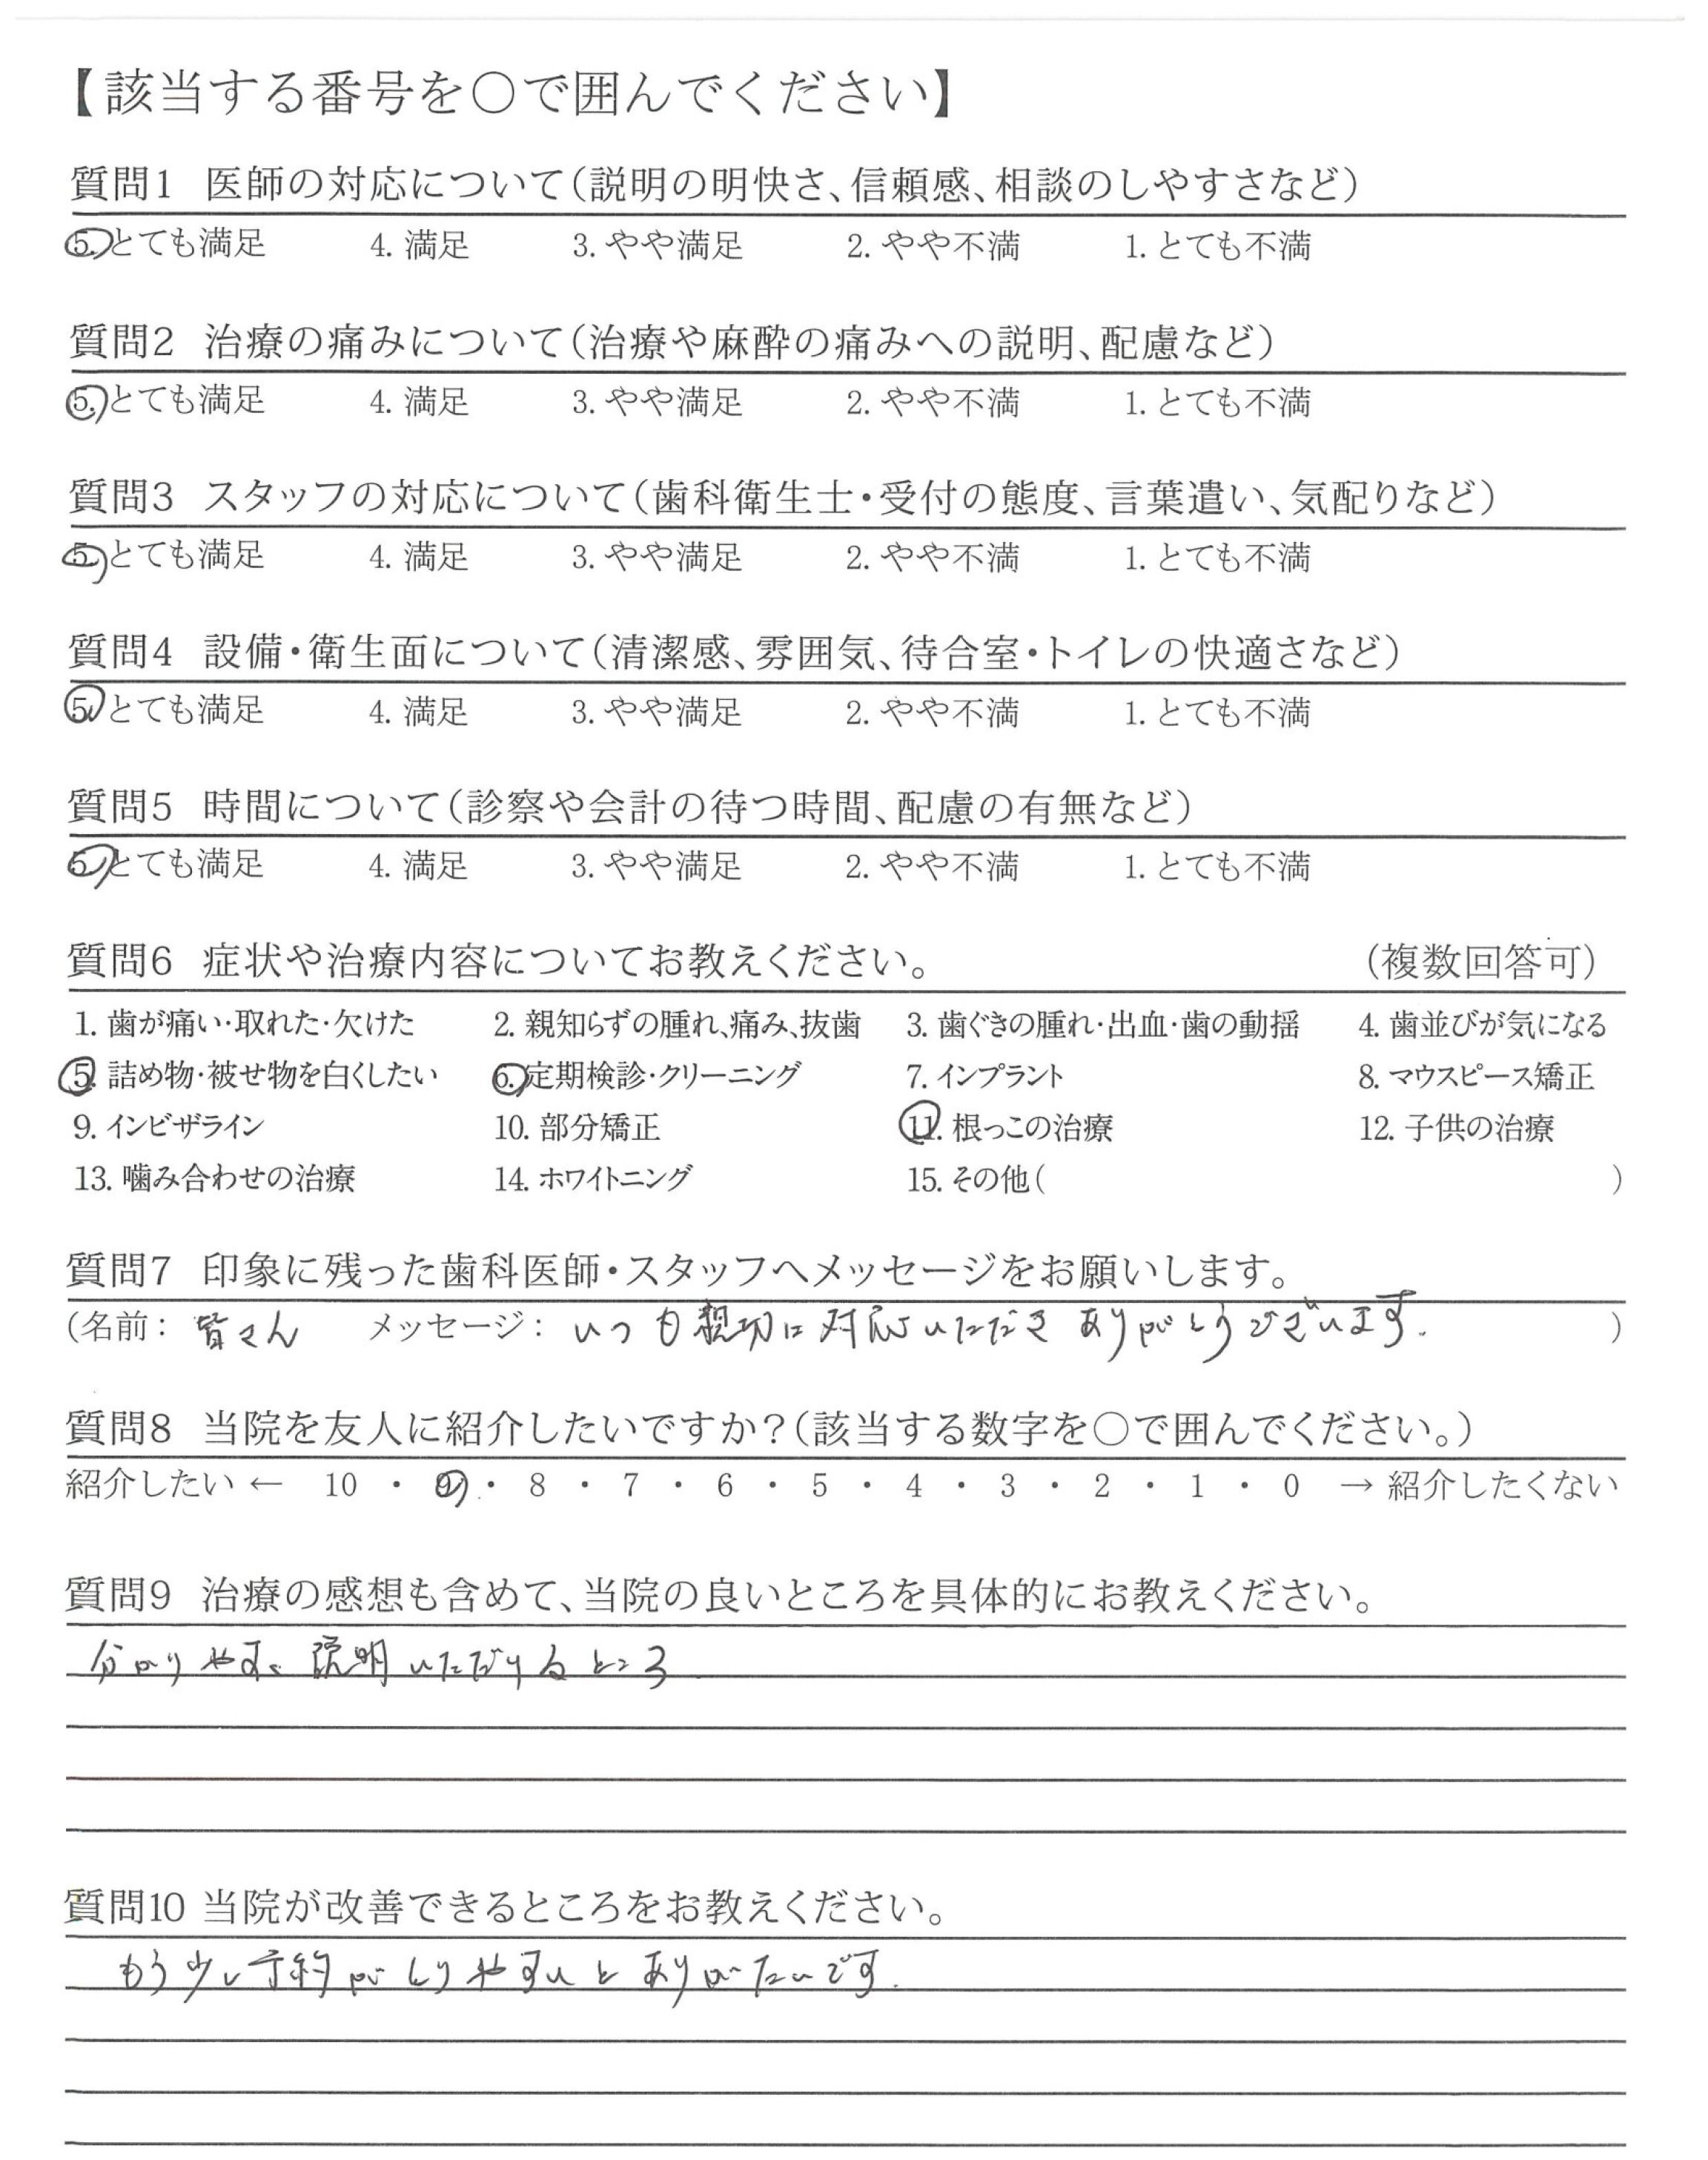 【該当する番号を○で囲んでください】
質問1 医師の対応について(説明の明快さ、信頼感、相談のしやすさなど)
5. とても満足 4. 満足 3. やや満足 2. やや不満 1. とても不満
質問2 治療の痛みについて(治療や麻酔の痛みへの説明、配慮など)
5. とても満足 4. 満足 3. やや満足 2. やや不満 1. とても不満
質問3 スタッフの対応について(歯科衛生士・受付の態度、言葉遣い、気配りなど)
5. とても満足 4. 満足 3. やや満足 2. やや不満 1. とても不満
質問4 設備・衛生面について(清潔感、雰囲気、待合室・トイレの快適さなど)
5. とても満足 4. 満足 3. やや満足 2. やや不満 1. とても不満
質問5 時間について(診察や会計の待つ時間、配慮の有無など)
5. とても満足 4. 満足 3. やや満足 2. やや不満 1. とても不満
質問6 症状や治療内容についてお教えください。 (複数回答可)
1. 歯が痛い・取れた・欠けた 2. 親知らずの腫れ、痛み、抜歯 3. 歯ぐきの腫れ・出血・歯の動揺 4. 歯並びが気になる
5. 詰め物・被せ物を白くしたい 6. 定期検診・クリーニング 7. インプラント 8. マウスピース矯正
9. インビザライン 10. 部分矯正 11. 根っこの治療 12. 子供の治療
13. 噛み合わせの治療 14. ホワイトニング 15. その他( )
質問7 印象に残った歯科医師・スタッフへメッセージをお願いします。
(名前: 皆さん メッセージ: いつも親切に対応いただきありがとうございます. )
質問8 当院を友人に紹介したいですか?(該当する数字を○で囲んでください。)
紹介したい ← 10 ・ 9 ・ 8 ・ 7 ・ 6 ・ 5 ・ 4 ・ 3 ・ 2 ・ 1 ・ 0 → 紹介したくない
質問9 治療の感想も含めて、当院の良いところを具体的にお教えください。
分かりやすく説明いただけるところ
質問10 当院が改善できるところをお教えください。
もう少し予約がとりやすいとありがたいです.